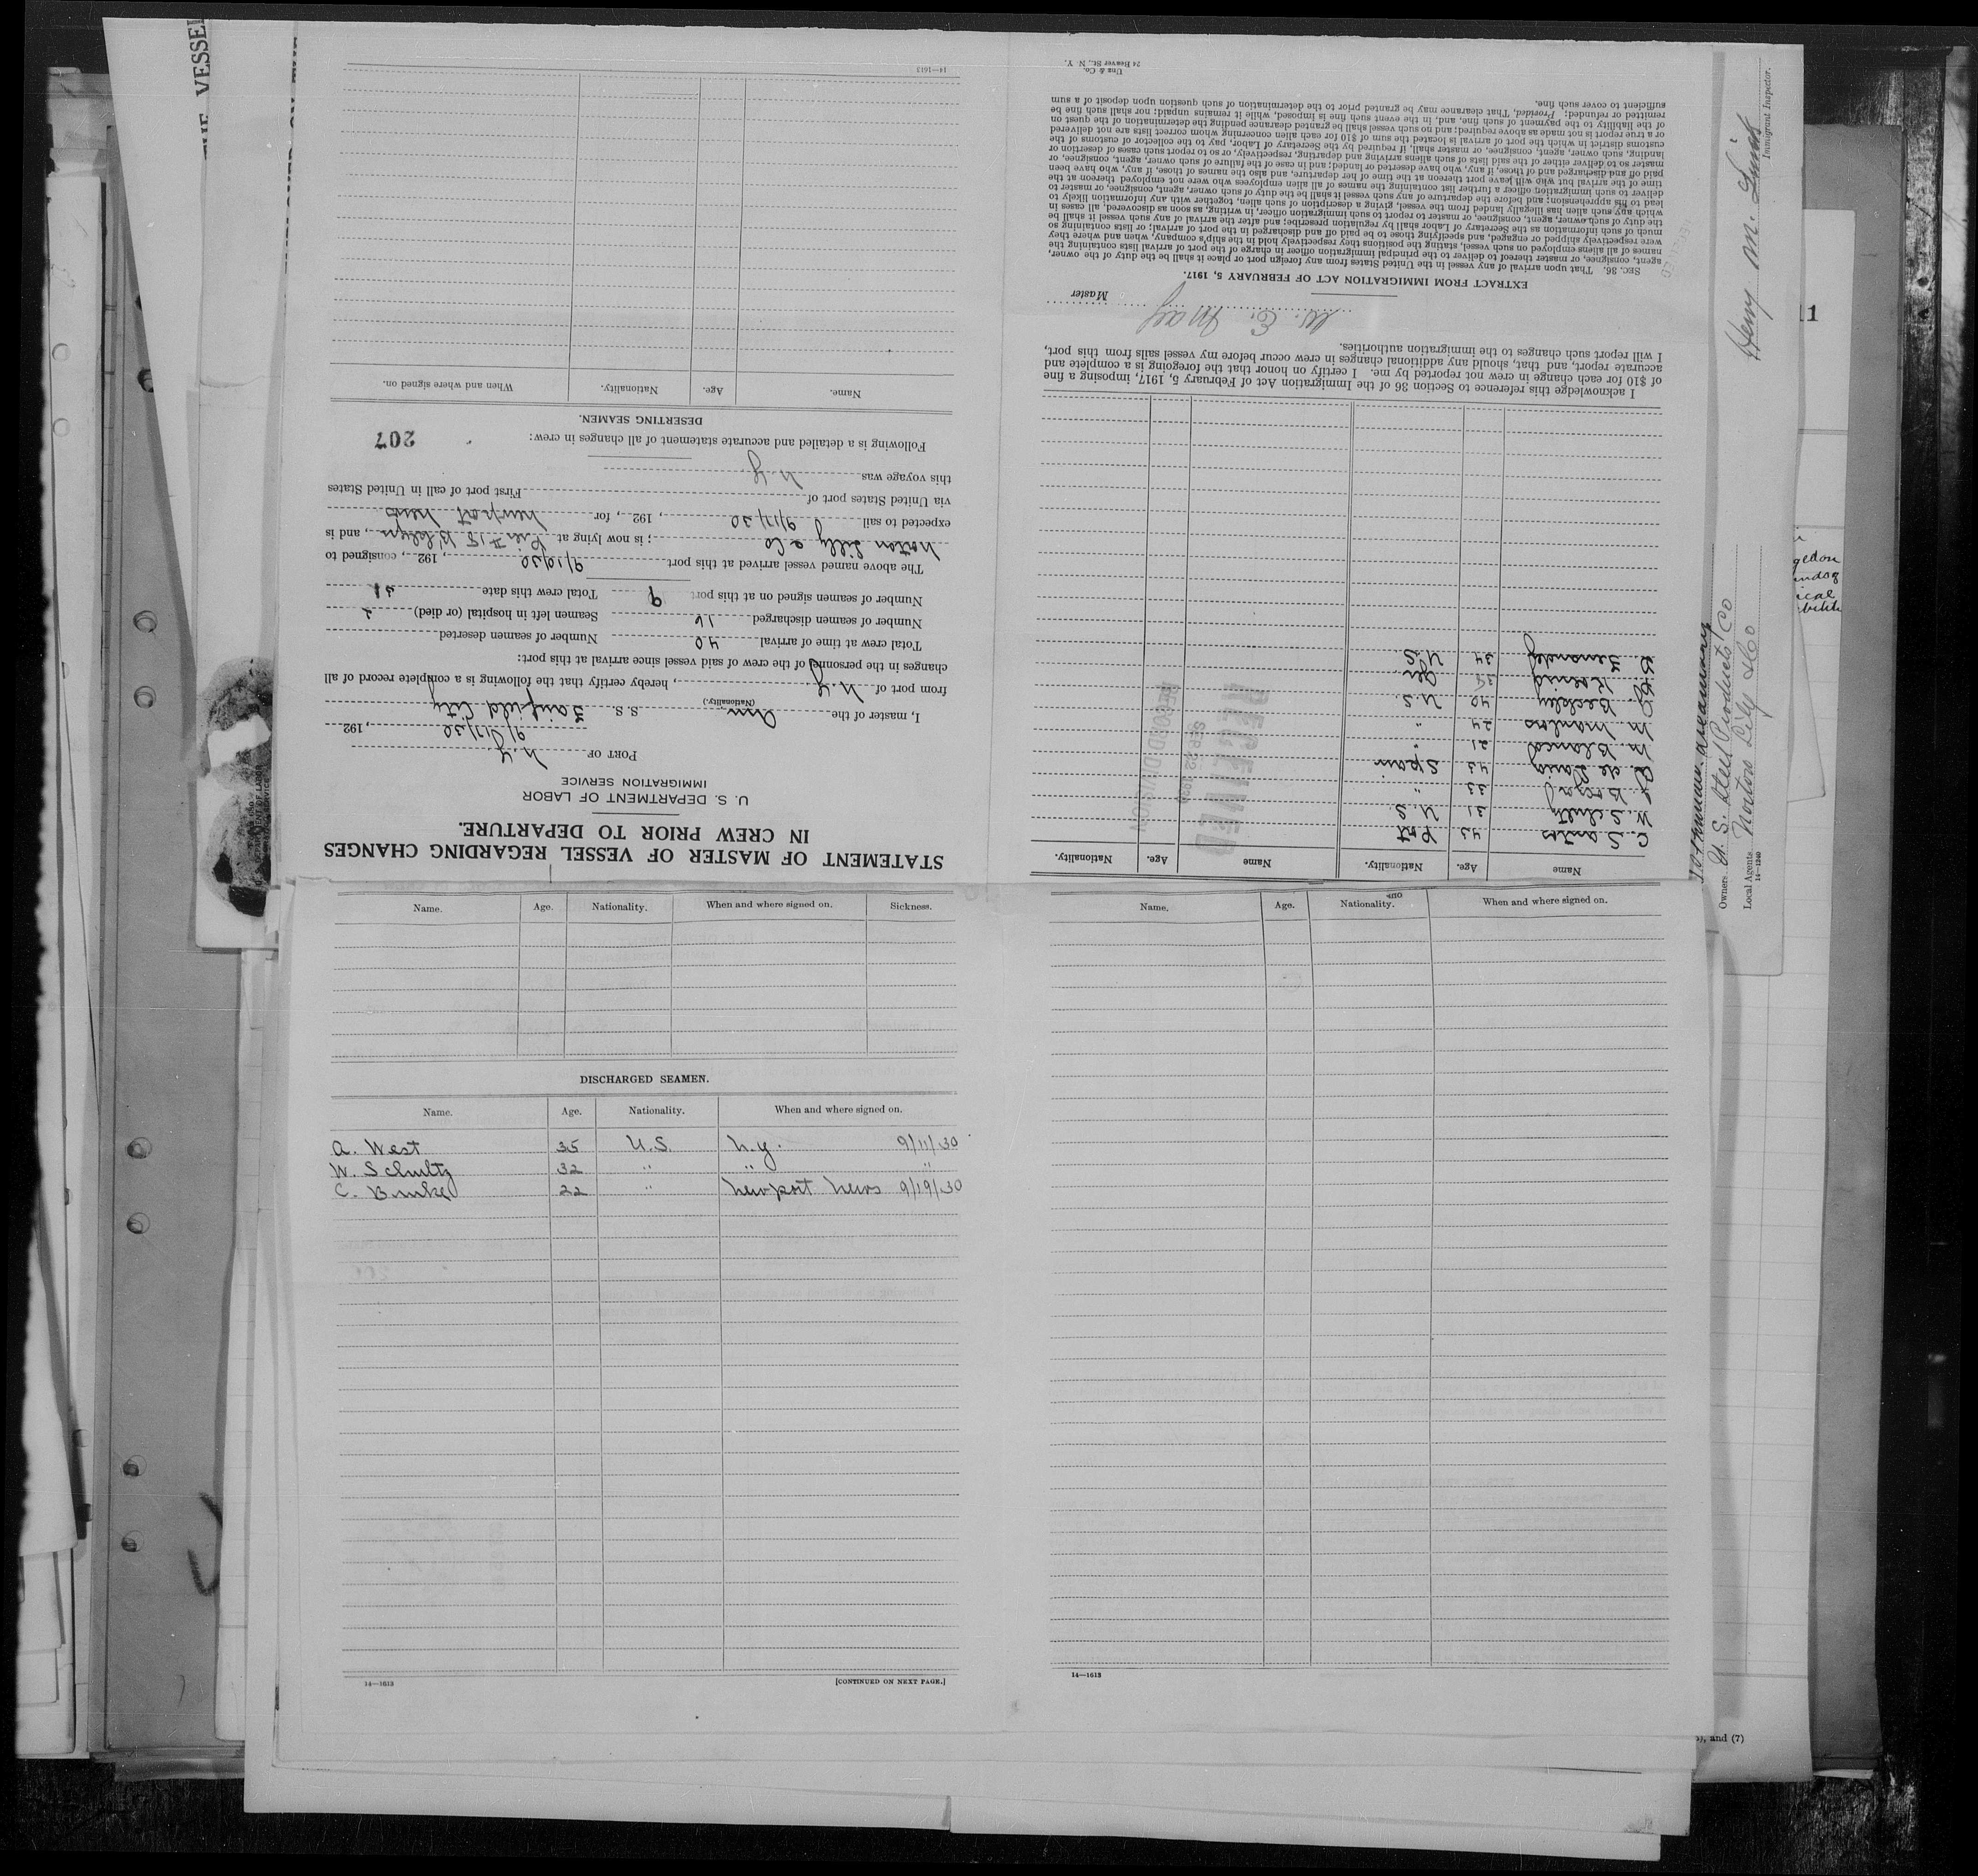 STATEMENT OF MASTER OF VESSEL REGARDING CHANGES
IN CREW PRIOR TO DEPARTURE.
U. S. DEPARTMENT OF LABOR
IMMIGRATION SERVICE
PORT OF N.Y.
9/17/30, 192
I, master of the Am S. S. Fairfield City
(Nationality.)
from port of N.Y., hereby certify that the following is a complete record of all
changes in the personnel of the crew of said vessel since arrival at this port:
Total crew at time of arrival 40 Number of seamen deserted
Number of seamen discharged 16 Seamen left in hospital (or died) 2
Number of seamen signed on at this port 9 Total crew this date 31
The above named vessel arrived at this port 9/10/30, 192 , consigned to
Norton Lilly & Co; is now lying at Pier #18 B'klyn, and is
expected to sail 9/17/30, 192 , for Newport News
via United States port of First port of call in United States
this voyage was N.Y.
Following is a detailed and accurate statement of all changes in crew:
207
DESERTING SEAMEN.
Name. Age. Nationality. When and where signed on.
14—1613
Name. Age. Nationality. When and where signed on. Sickness.
DISCHARGED SEAMEN.
Name. Age. Nationality. When and where signed on.
A. West 35 U.S. N.Y. 9/11/30
W. Schultz 32 " " "
C. Burke 22 " Newport News 9/19/30
14—1613 [CONTINUED ON NEXT PAGE.]
Name. Age. Nationality. When and where signed on.
14—1613
Name Age. Nationality. Name Age. Nationality.
C. Santos 43 Port
W. Schultz 31 U.S.
33 "
43 Spain
M. Blanco 21 "
M. 24 "
Beckley 40 U.S.
Koenig Ger.
Fernandez 34 U.S.
RECEIVED
SEP 22 1930
RECORD DIVISION
I acknowledge this reference to Section 36 of the Immigration Act of February 5, 1917, imposing a fine
of $10 for each change in crew not reported by me. I certify on honor that the foregoing is a complete and
accurate report, and that, should any additional changes in crew occur before my vessel sails from this port,
I will report such changes to the immigration authorities.
W. E. May
Master
EXTRACT FROM IMMIGRATION ACT OF FEBRUARY 5, 1917.
SEC. 36. That upon arrival of any vessel in the United States from any foreign port or place it shall be the duty of the owner,
agent, consignee, or master thereof to deliver to the principal immigration officer in charge of the port of arrival lists containing the
names of all aliens employed on such vessel, stating the positions they respectively hold in the ship's company, when and where they
were respectively shipped or engaged, and specifying those to be paid off and discharged in the port of arrival; or lists containing so
much of such information as the Secretary of Labor shall by regulation prescribe; and after the arrival of any such vessel it shall be
the duty of such owner, agent, consignee, or master to report to such immigration officer, in writing, as soon as discovered, all cases in
which any such alien has illegally landed from the vessel, giving a description of such alien, together with any information likely to
lead to his apprehension; and before the departure of any such vessel it shall be the duty of such owner, agent, consignee, or master to
deliver to such immigration officer a further list containing the names of all alien employees who were not employed thereon at the
time of the arrival but who will leave port thereon at the time of her departure, and also the names of those, if any, who have been
paid off and discharged and of those, if any, who have deserted or landed; and in case of the failure of such owner, agent, consignee, or
master so to deliver either of the said lists of such aliens arriving and departing, respectively, or so to report such cases of desertion or
landing, such owner, agent, consignee, or master shall, if required by the Secretary of Labor, pay to the collector of customs of the
customs district in which the port of arrival is located the sum of $10 for each alien concerning whom correct lists are not delivered
or a true report is not made as above required; and no such vessel shall be granted clearance pending the determination of the question
of the liability to the payment of such fine, and, in the event such fine is imposed, while it remains unpaid; nor shall such fine be
remitted or refunded: Provided, That clearance may be granted prior to the determination of such question upon deposit of a sum
sufficient to cover such fine.
Unz & Co.
24 Beaver St., N. Y.
Henry M.
Immigrant Inspector.
Owners U. S. Steel Products Co
Local Agents Norton Lilly & Co
14—1240
THE VESSEL
11
), and (7)